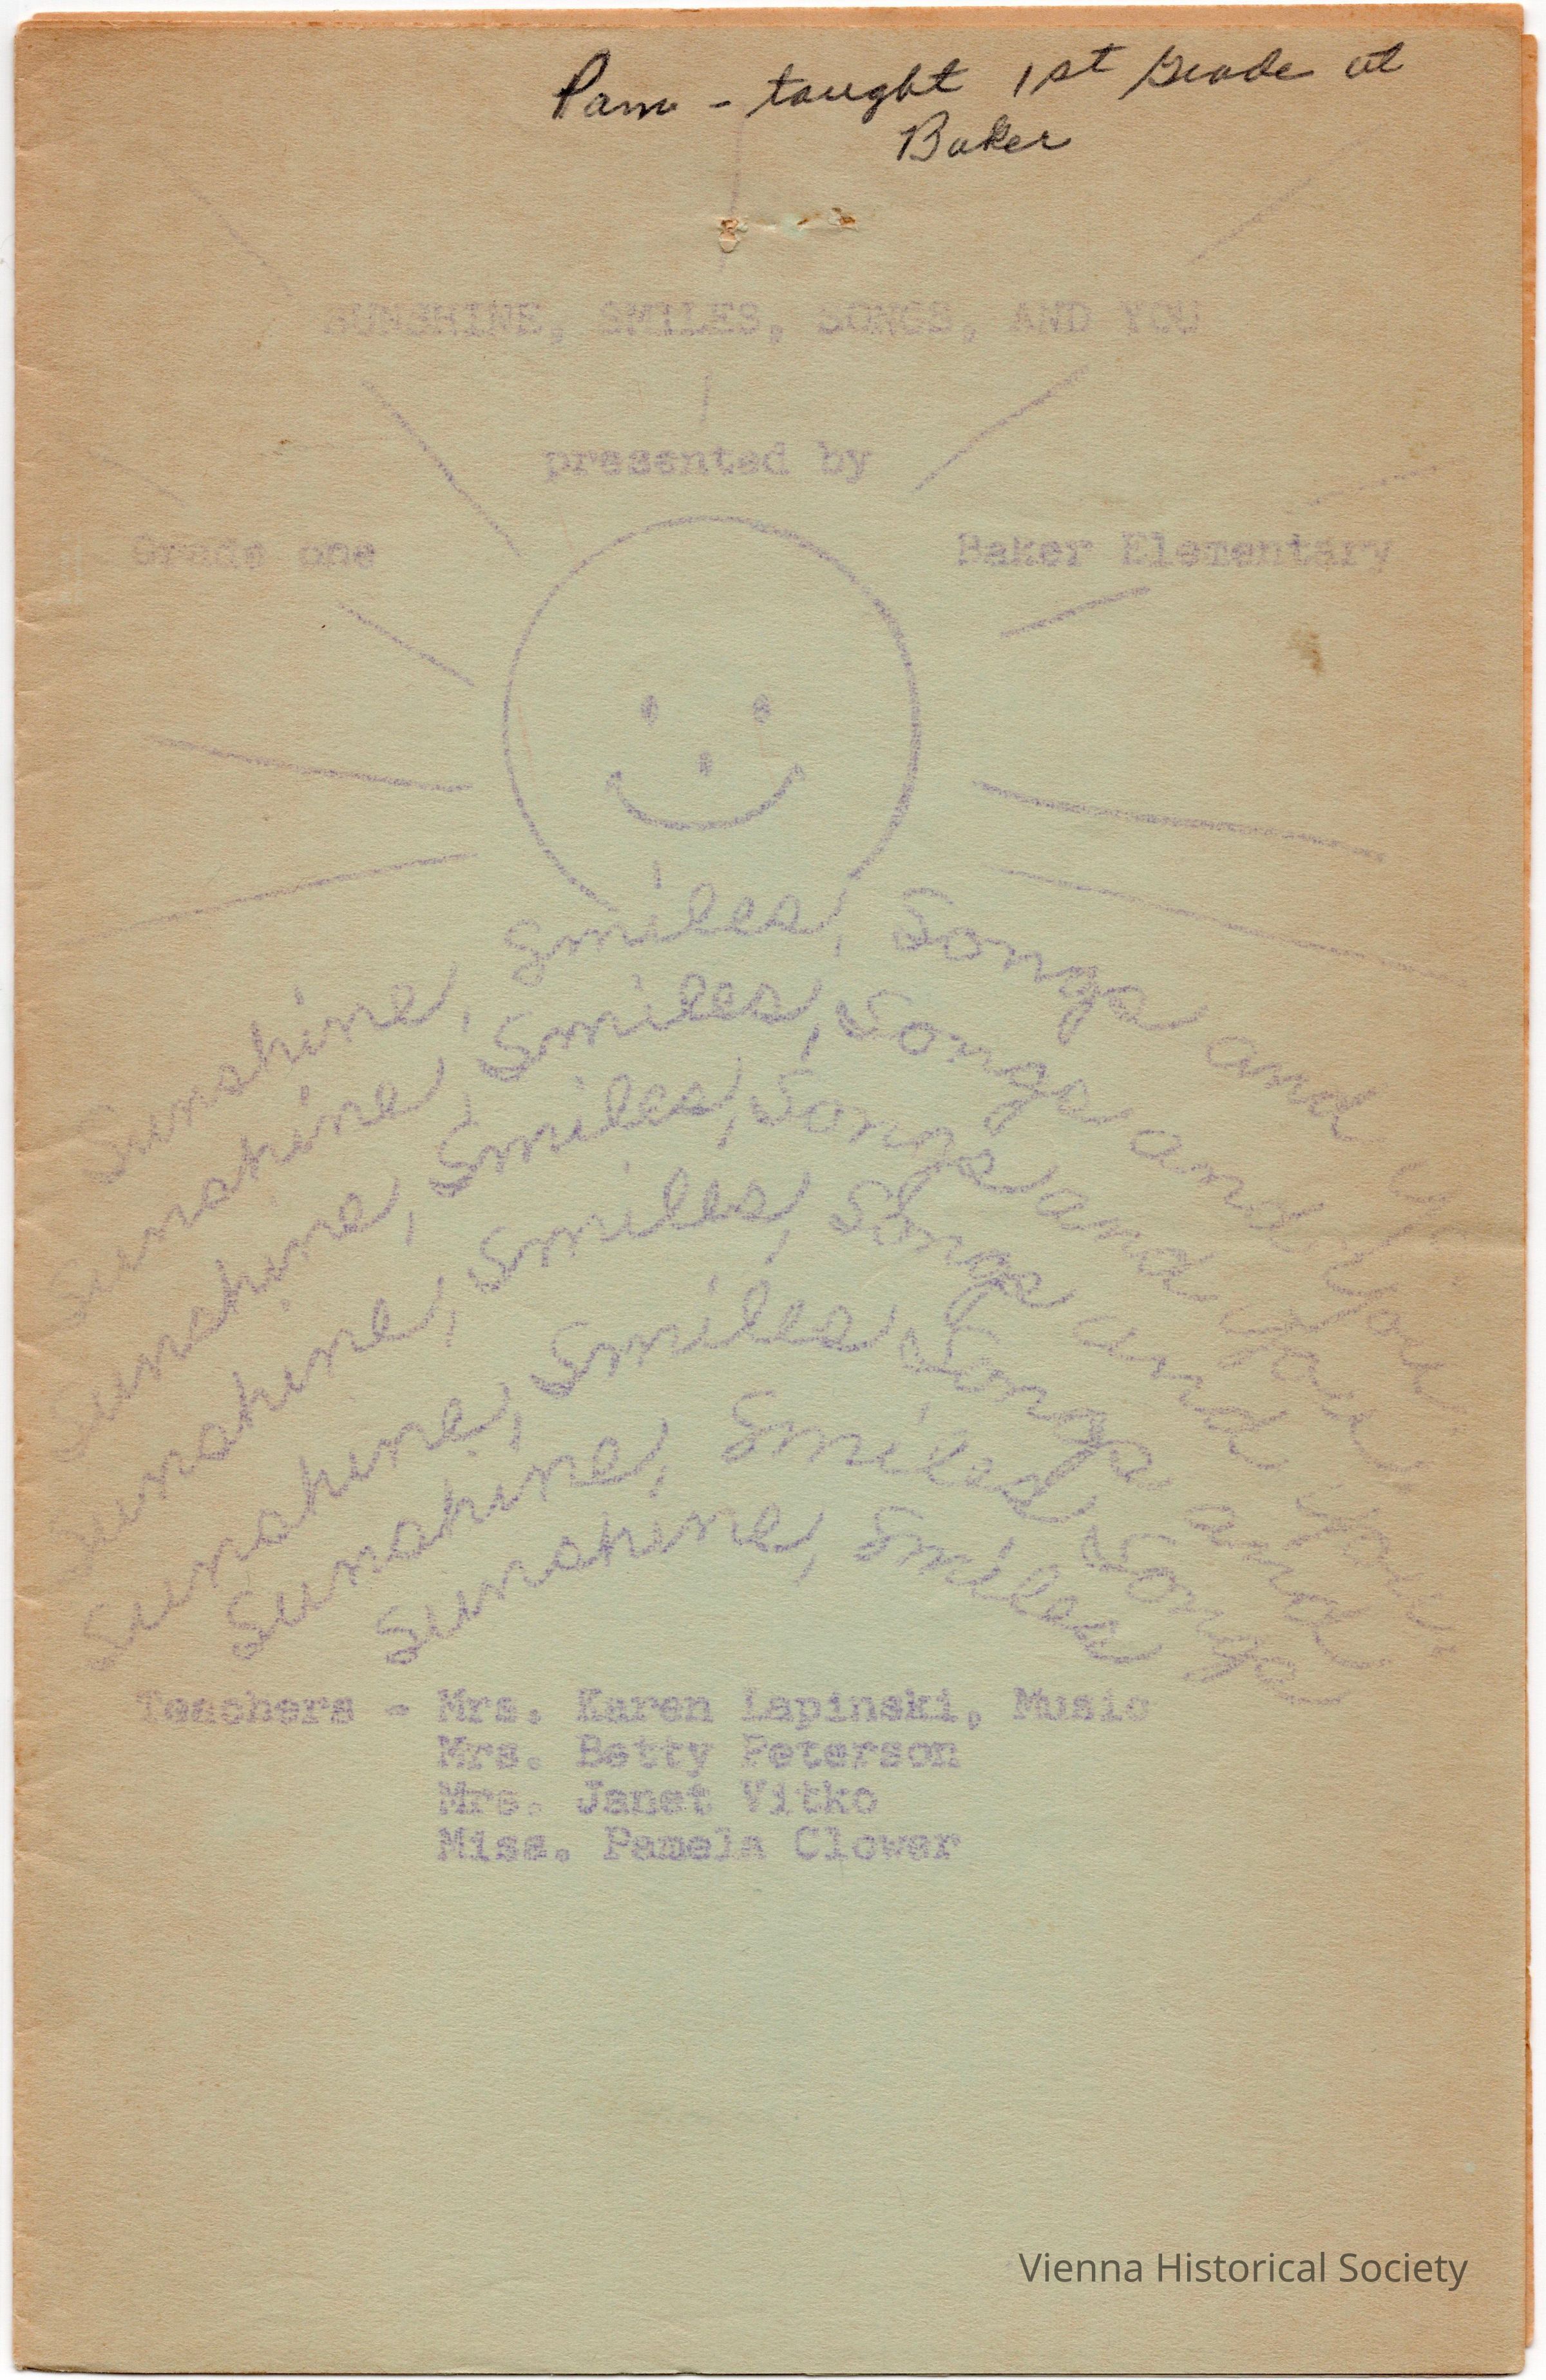 Pam - taught 1st Grade at
Baker
SUNSHINE, SMILES, SONGS, AND YOU
presented by
Grade one
Baker Elementary
Sunshine, Smiles, Songs and you
Sunshine, Smiles, Songs and You
Sunshine, Smiles, Songs and You
Sunshine, Smiles, Songs and You
Sunshine, Smiles Songs and
Sunshine, Smiles Songs
Sunshine, Smiles
Teachers - Mrs. Karen Lapinski, Music
Mrs. Betty Peterson
Mrs. Janet Vitko
Miss. Pamela Clower
Vienna Historical Society